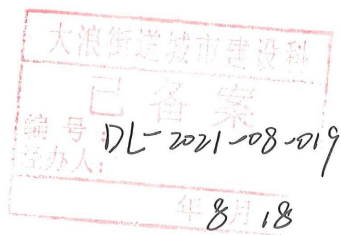 大浪街道城市建设科
已备案
编号:DL-2021-08-019
经办人:
年8月18